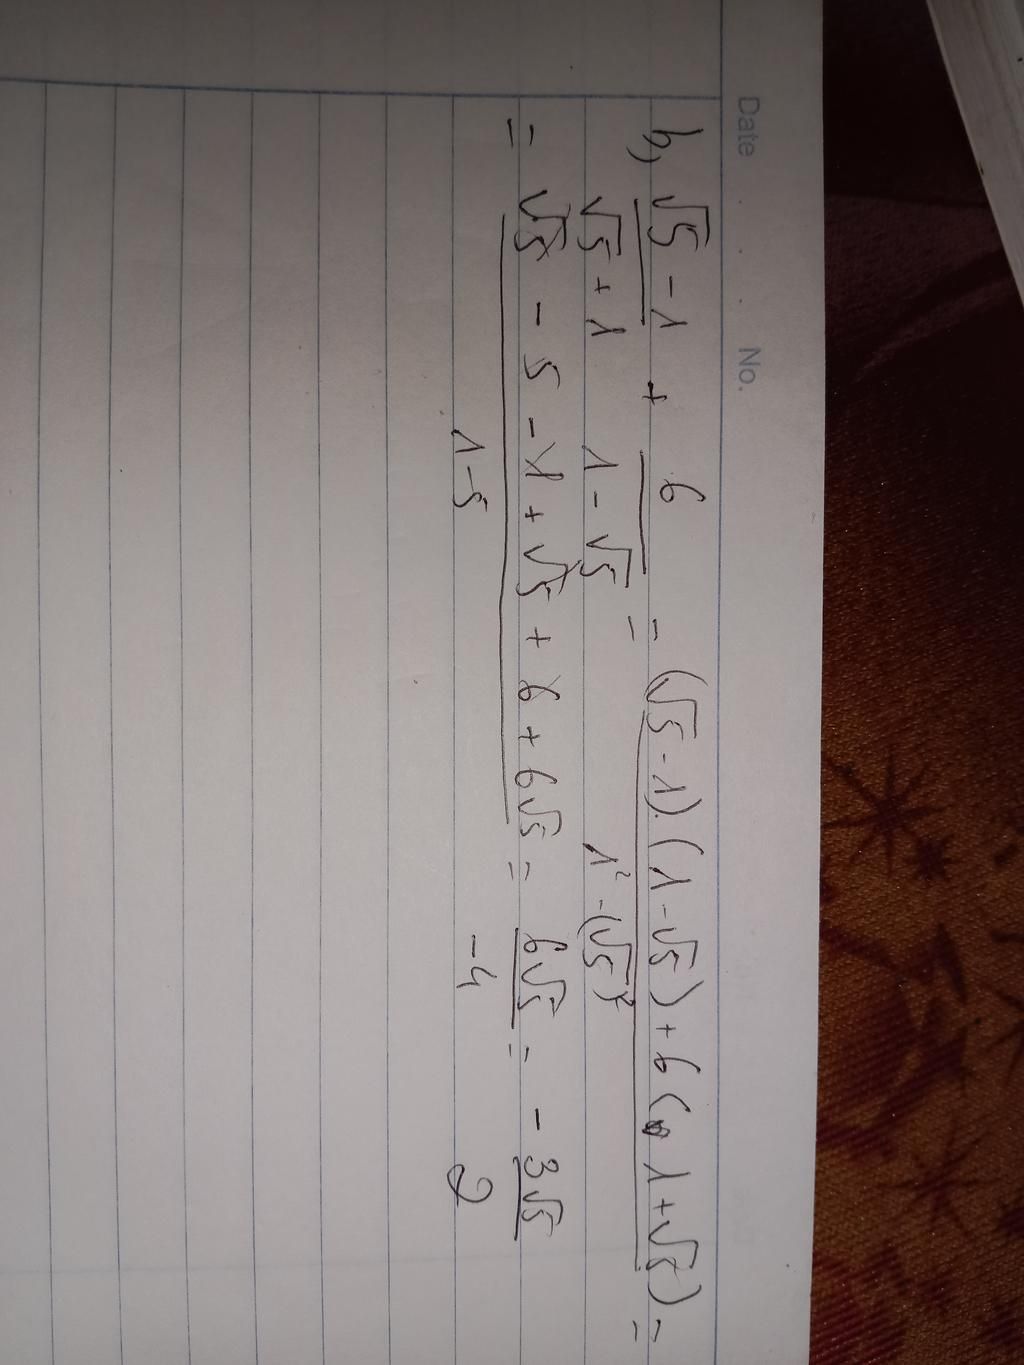 Date No.
b, \frac{√5 - 1}{√5 + 1} + \frac{6}{1 - √5} = \frac{(√5 - 1).(1 - √5) + 6(1 + √5)}{1² - (√5)²} =
= \frac{√5 - 5 - 1 + √5 + 6 + 6√5}{1 - 5} = \frac{6√5}{-4} = - \frac{3√5}{2}